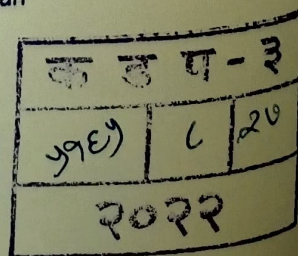 क ड प - ३
५१६५ ८ २७
२०२२